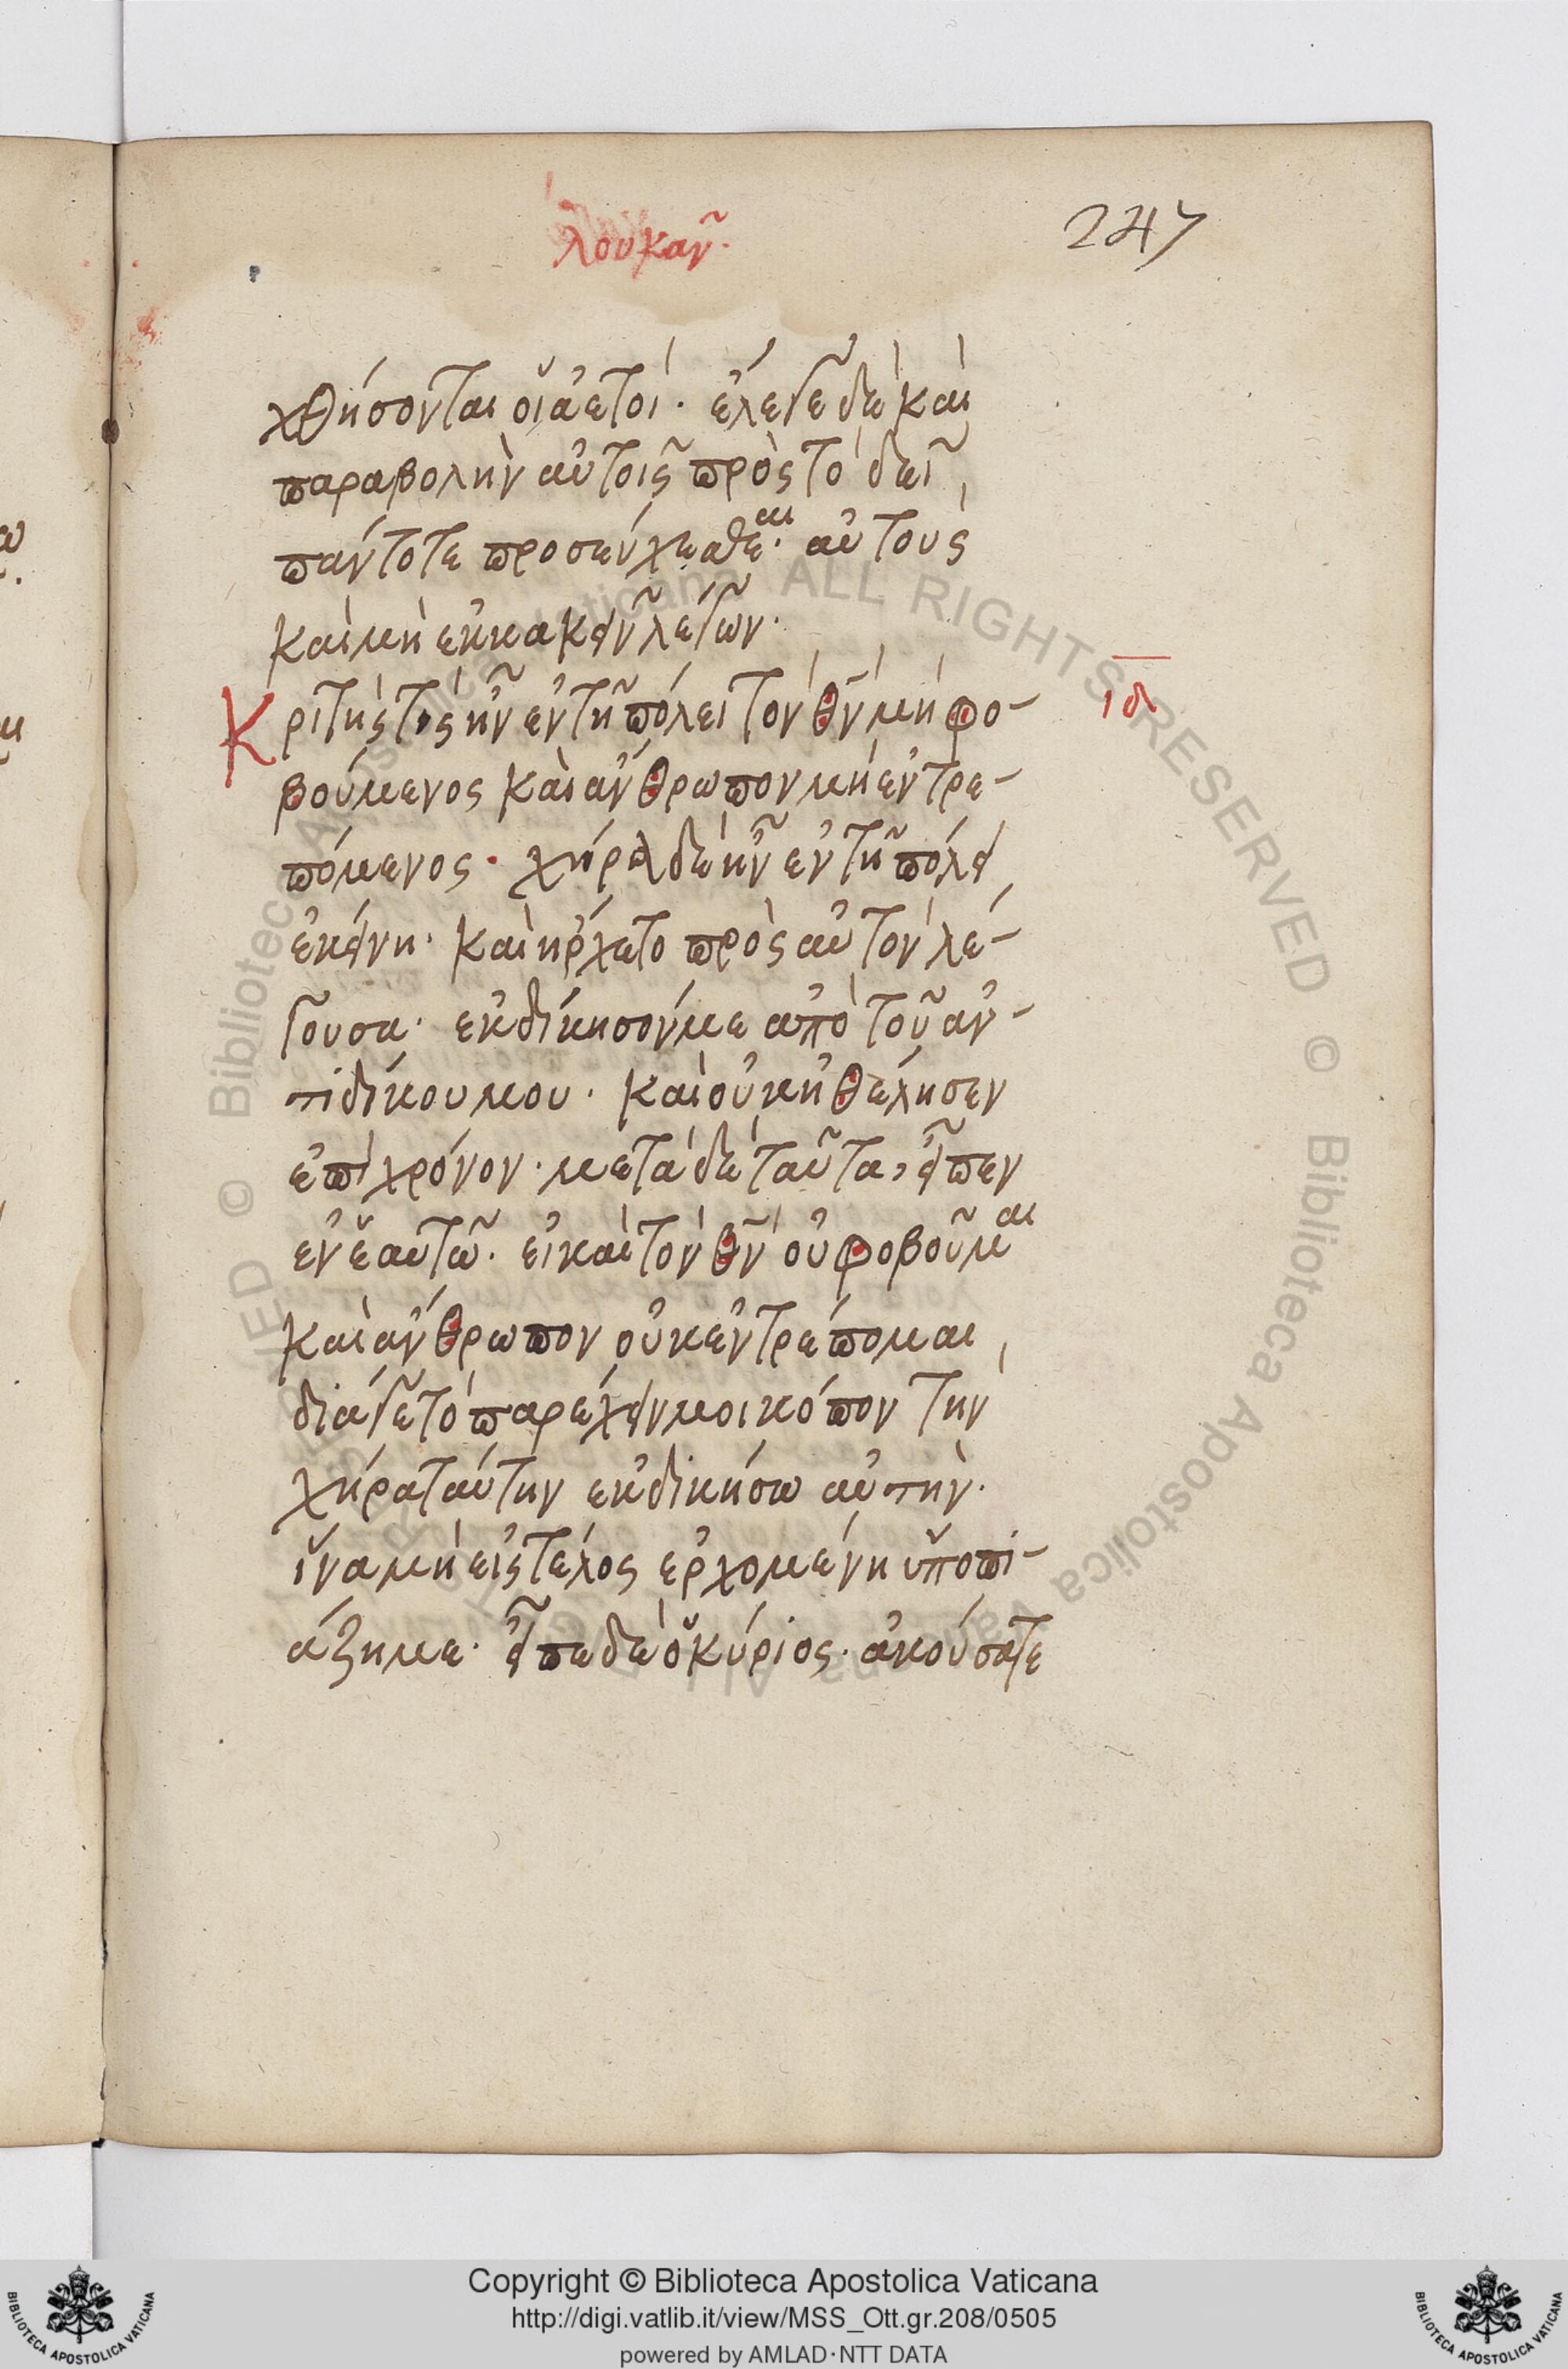 λουκᾶν.
247
χθήσονται οἱ ἀετοί. ἔλεγε δὲ καὶ
παραβολὴν αὐτοῖς πρὸς τὸ δεῖ
πάντοτε προσεύχεσθεαι. αὐτοὺς
καὶ μὴ ἐκκακεῖν λέγων.
Κριτής τις ἦν ἐν τῇ πόλει τὸν θν μὴ φο-
βούμενος καὶ ἄνθρωπον μὴ ἐντρε-
πόμενος. χήρα δὲ ἦν ἐν τῇ πόλει
ἐκείνη. καὶ ἤρχετο πρὸς αὐτὸν λέ-
γουσα. ἐκδίκησόν με ἀπὸ τοῦ ἀν-
τιδίκου μου. καὶ οὐκ ἠθέλησεν
ἐπὶ χρόνον. μετὰ δὲ ταῦτα, εἶπεν
ἐν ἑαυτῷ. εἰ καὶ τὸν θν οὐ φοβοῦμαι
καὶ ἄνθρωπον οὐκ ἐντρέπομαι,
διά γε τὸ παρέχειν μοι κόπον τὴν
χήρα ταύτην ἐκδικήσω αὐτήν.
ἵνα μὴ εἰς τέλος ἐρχομένη ὑποπι-
άζη με. εἶπε δὲ ὁ κύριος. ἀκούσατε
ιδ
Copyright © Biblioteca Apostolica Vaticana
http://digi.vatlib.it/view/MSS_Ott.gr.208/0505
powered by AMLAD·NTT DATA